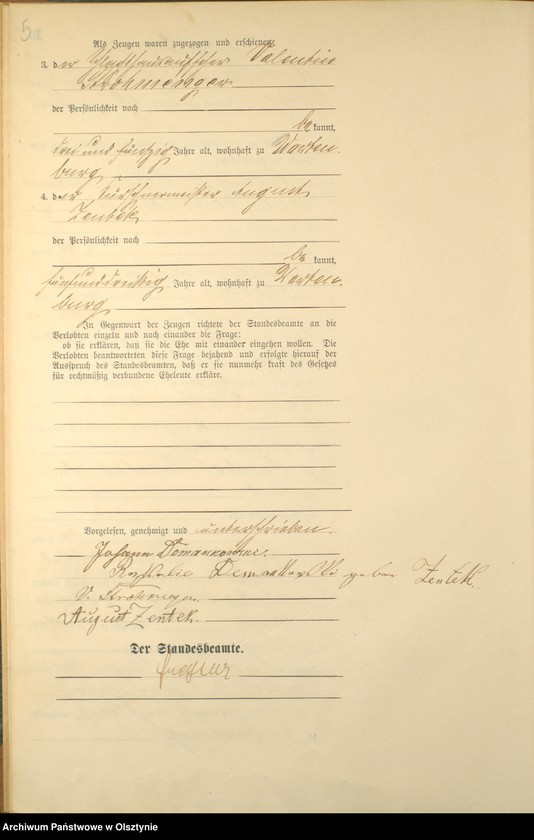 5
Als Zeugen waren zugezogen und erschienen:
3. der Valentin
Strohmenger
der Persönlichkeit nach
be kannt,
drei und fünfzig Jahre alt, wohnhaft zu Warten-
burg
4. der August
Zentek
der Persönlichkeit nach
be kannt,
fünfunddreißig Jahre alt, wohnhaft zu Warten-
burg
In Gegenwart der Zeugen richtete der Standesbeamte an die
Verlobten einzeln und nach einander die Frage:
ob sie erklären, daß sie die Ehe mit einander eingehen wollen. Die
Verlobten beantworteten diese Frage bejahend und erfolgte hierauf der
Ausspruch des Standesbeamten, daß er sie nunmehr kraft des Gesetzes
für rechtmäßig verbundene Eheleute erkläre.
Vorgelesen, genehmigt und unterschrieben.
Johann
geboren Zentek
V. Strohmenger
August Zentek.
Der Standesbeamte.
Archiwum Państwowe w Olsztynie